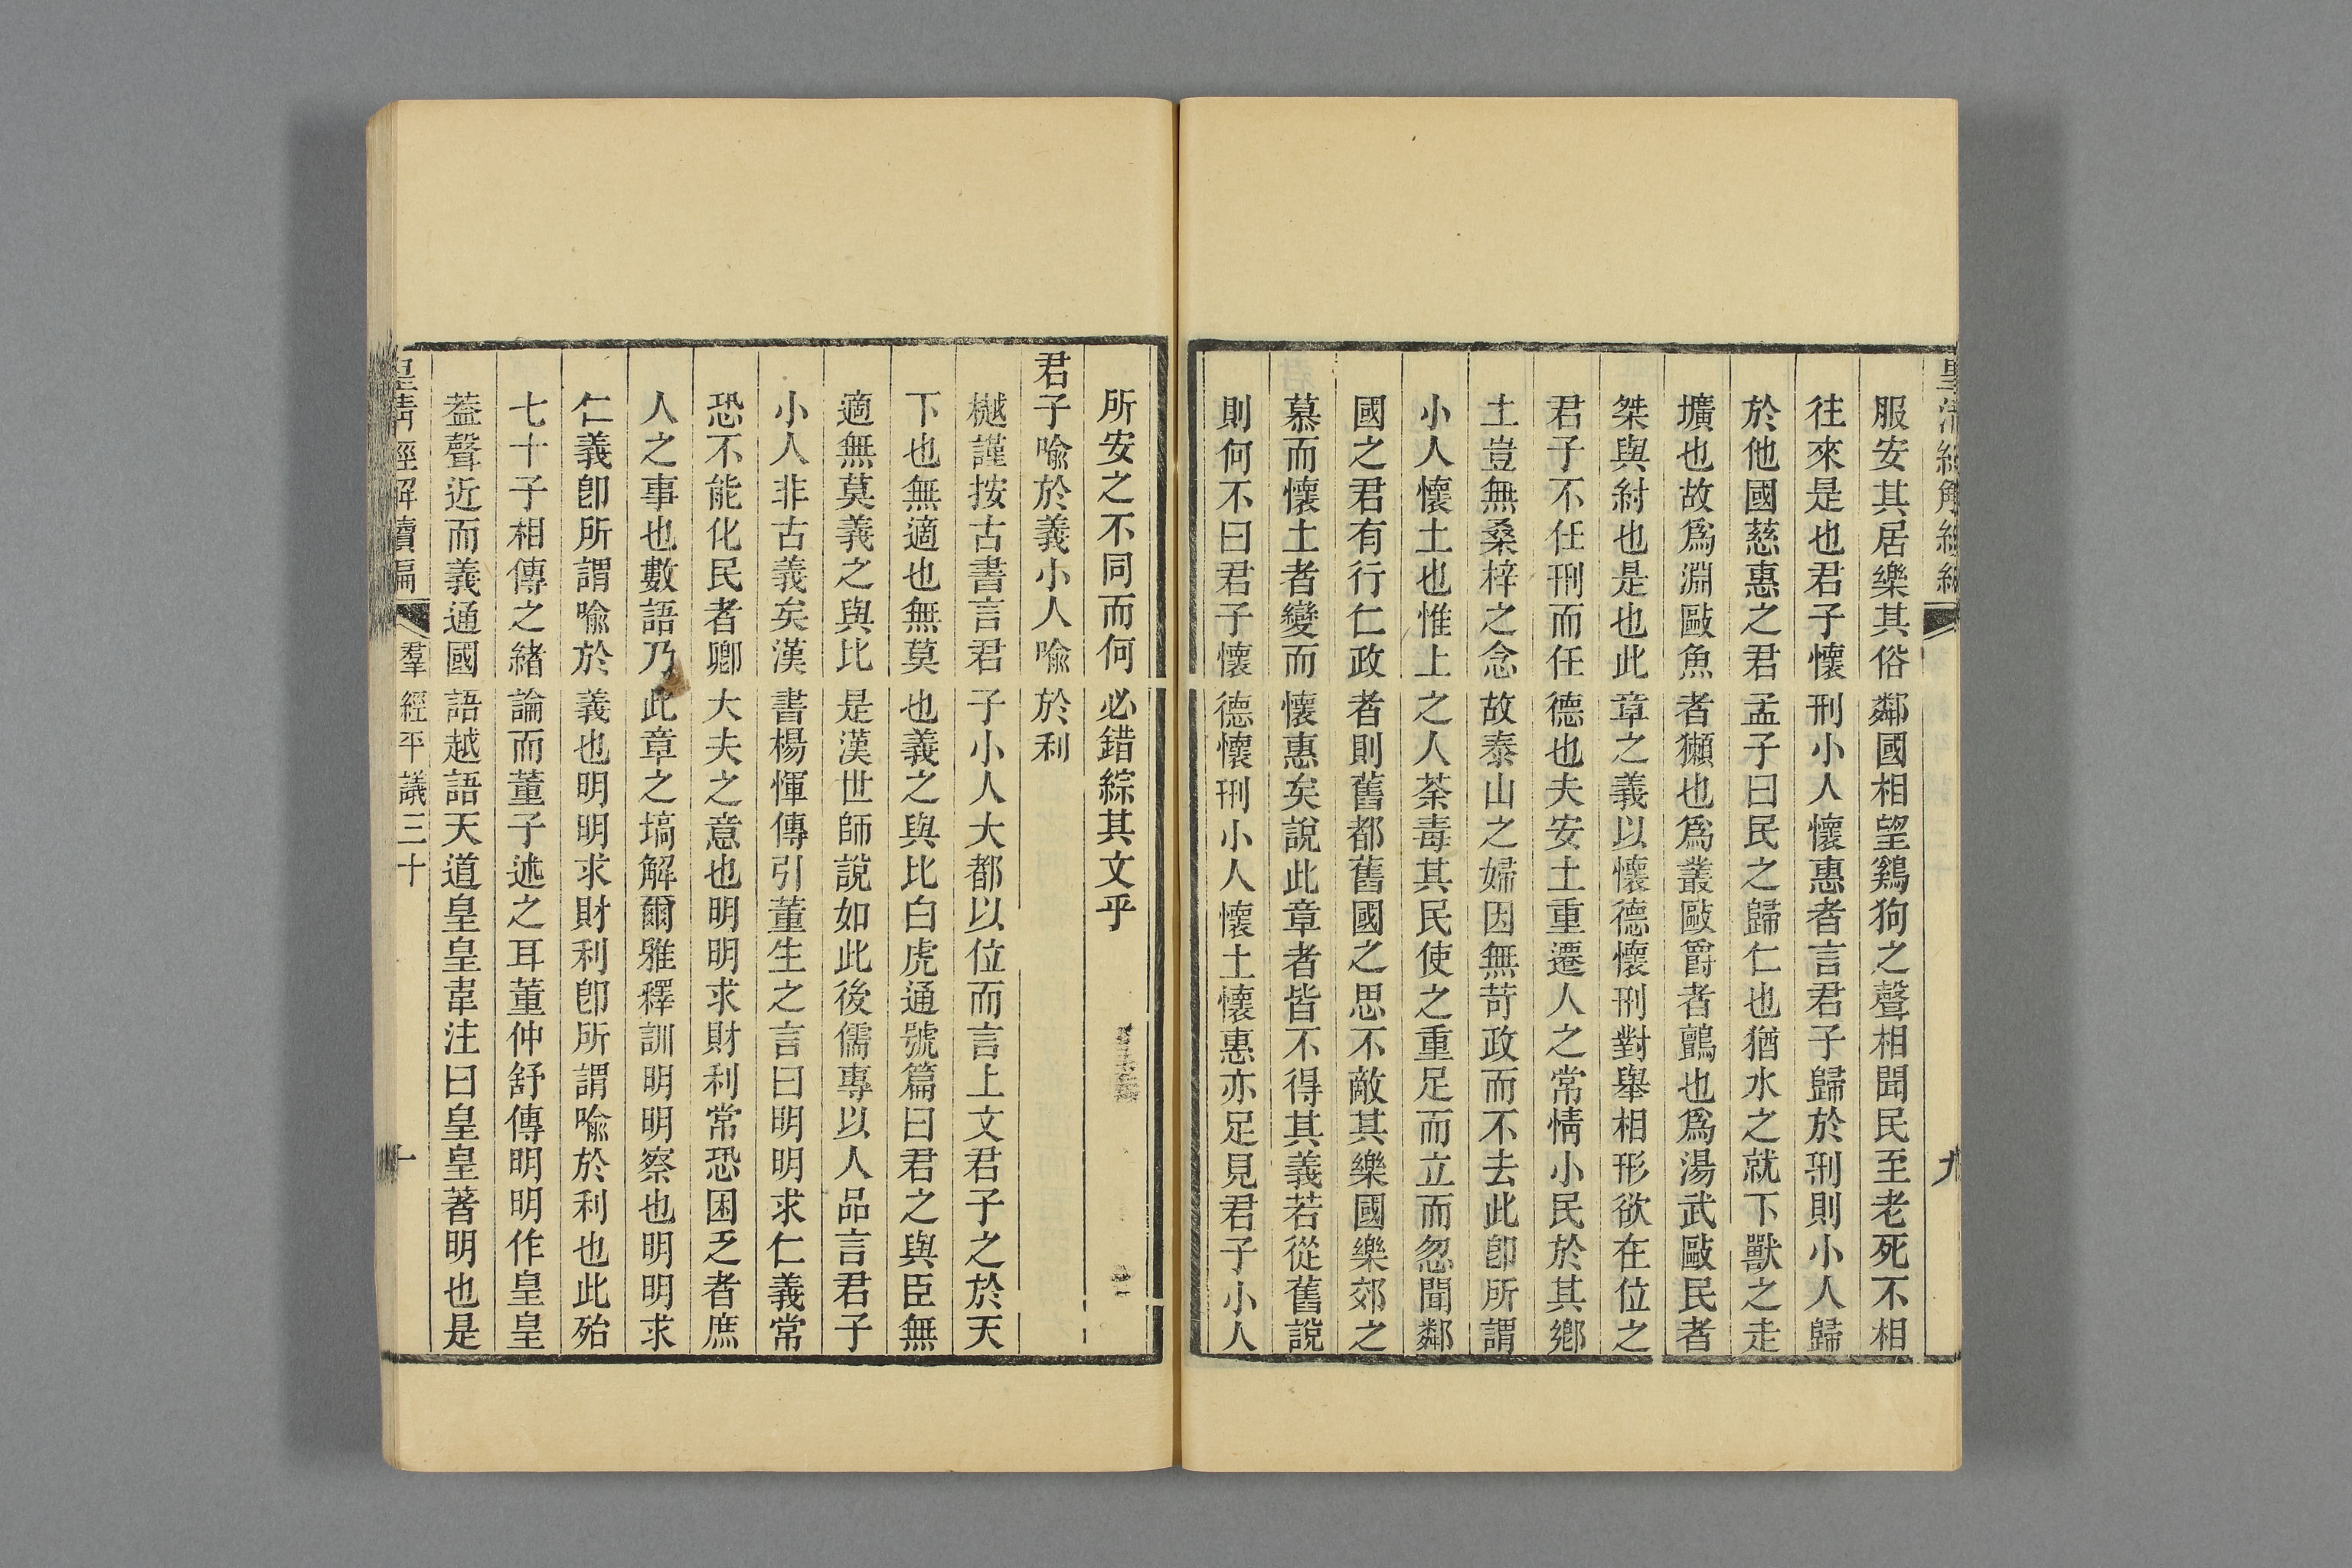 服安其居樂其俗鄰國相望鷄狗之聲相聞民至老死不相
往來是也君子懷刑小人懷惠者言君子歸於刑則小人歸
於他國慈惠之君孟子曰民之歸仁也猶水之就下獸之走
壙也故爲淵敺魚者獺也爲叢敺爵者鸇也爲湯武敺民者
桀與紂也是也此章之義以懷德懷刑對舉相形欲在位之
君子不任刑而任德也夫安土重遷人之常情小民於其鄉
土豈無桑梓之念故泰山之婦因無苛政而不去此卽所謂
小人懷土也惟上之人荼毒其民使之重足而立而忽聞鄰
國之君有行仁政者則舊都舊國之思不敵其樂國樂郊之
慕而懷土者變而懷惠矣說此章者皆不得其義若從舊說
則何不曰君子懷德懷刑小人懷土懷惠亦足見君子小人
所安之不同而何必錯綜其文乎
君子喩於義小人喩於利
樾謹按古書言君子小人大都以位而言上文君子之於天
下也無適也無莫也義之與比白虎通號篇曰君之與臣無
適無莫義之與比是漢世師說如此後儒專以人品言君子
小人非古義矣漢書楊惲傳引董生之言曰明明求仁義常
恐不能化民者卿大夫之意也明明求財利常恐困乏者庶
人之事也數語乃此章之塙解爾雅釋訓明明察也明明求
仁義卽所謂喩於義也明明求財利卽所謂喩於利也此殆
七十子相傳之緒論而董子述之耳董仲舒傳明明作皇皇
蓋聲近而義通國語越語天道皇皇韋注曰皇皇著明也是
皇清經解續編 羣經平議三十 十